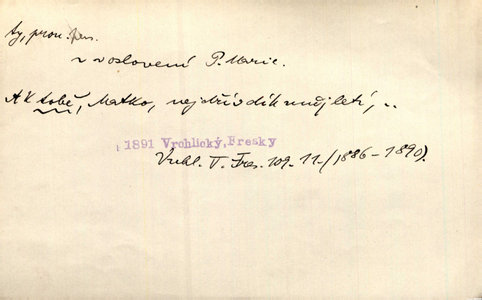 ty, pron. pers.
v oslovení P. Marie.
A k tobě, Matko, nejdřív dík můj letí, ..
1891 Vrchlický, Fresky
Vrchl. V. Fres. 109. 11. (1886-1890).